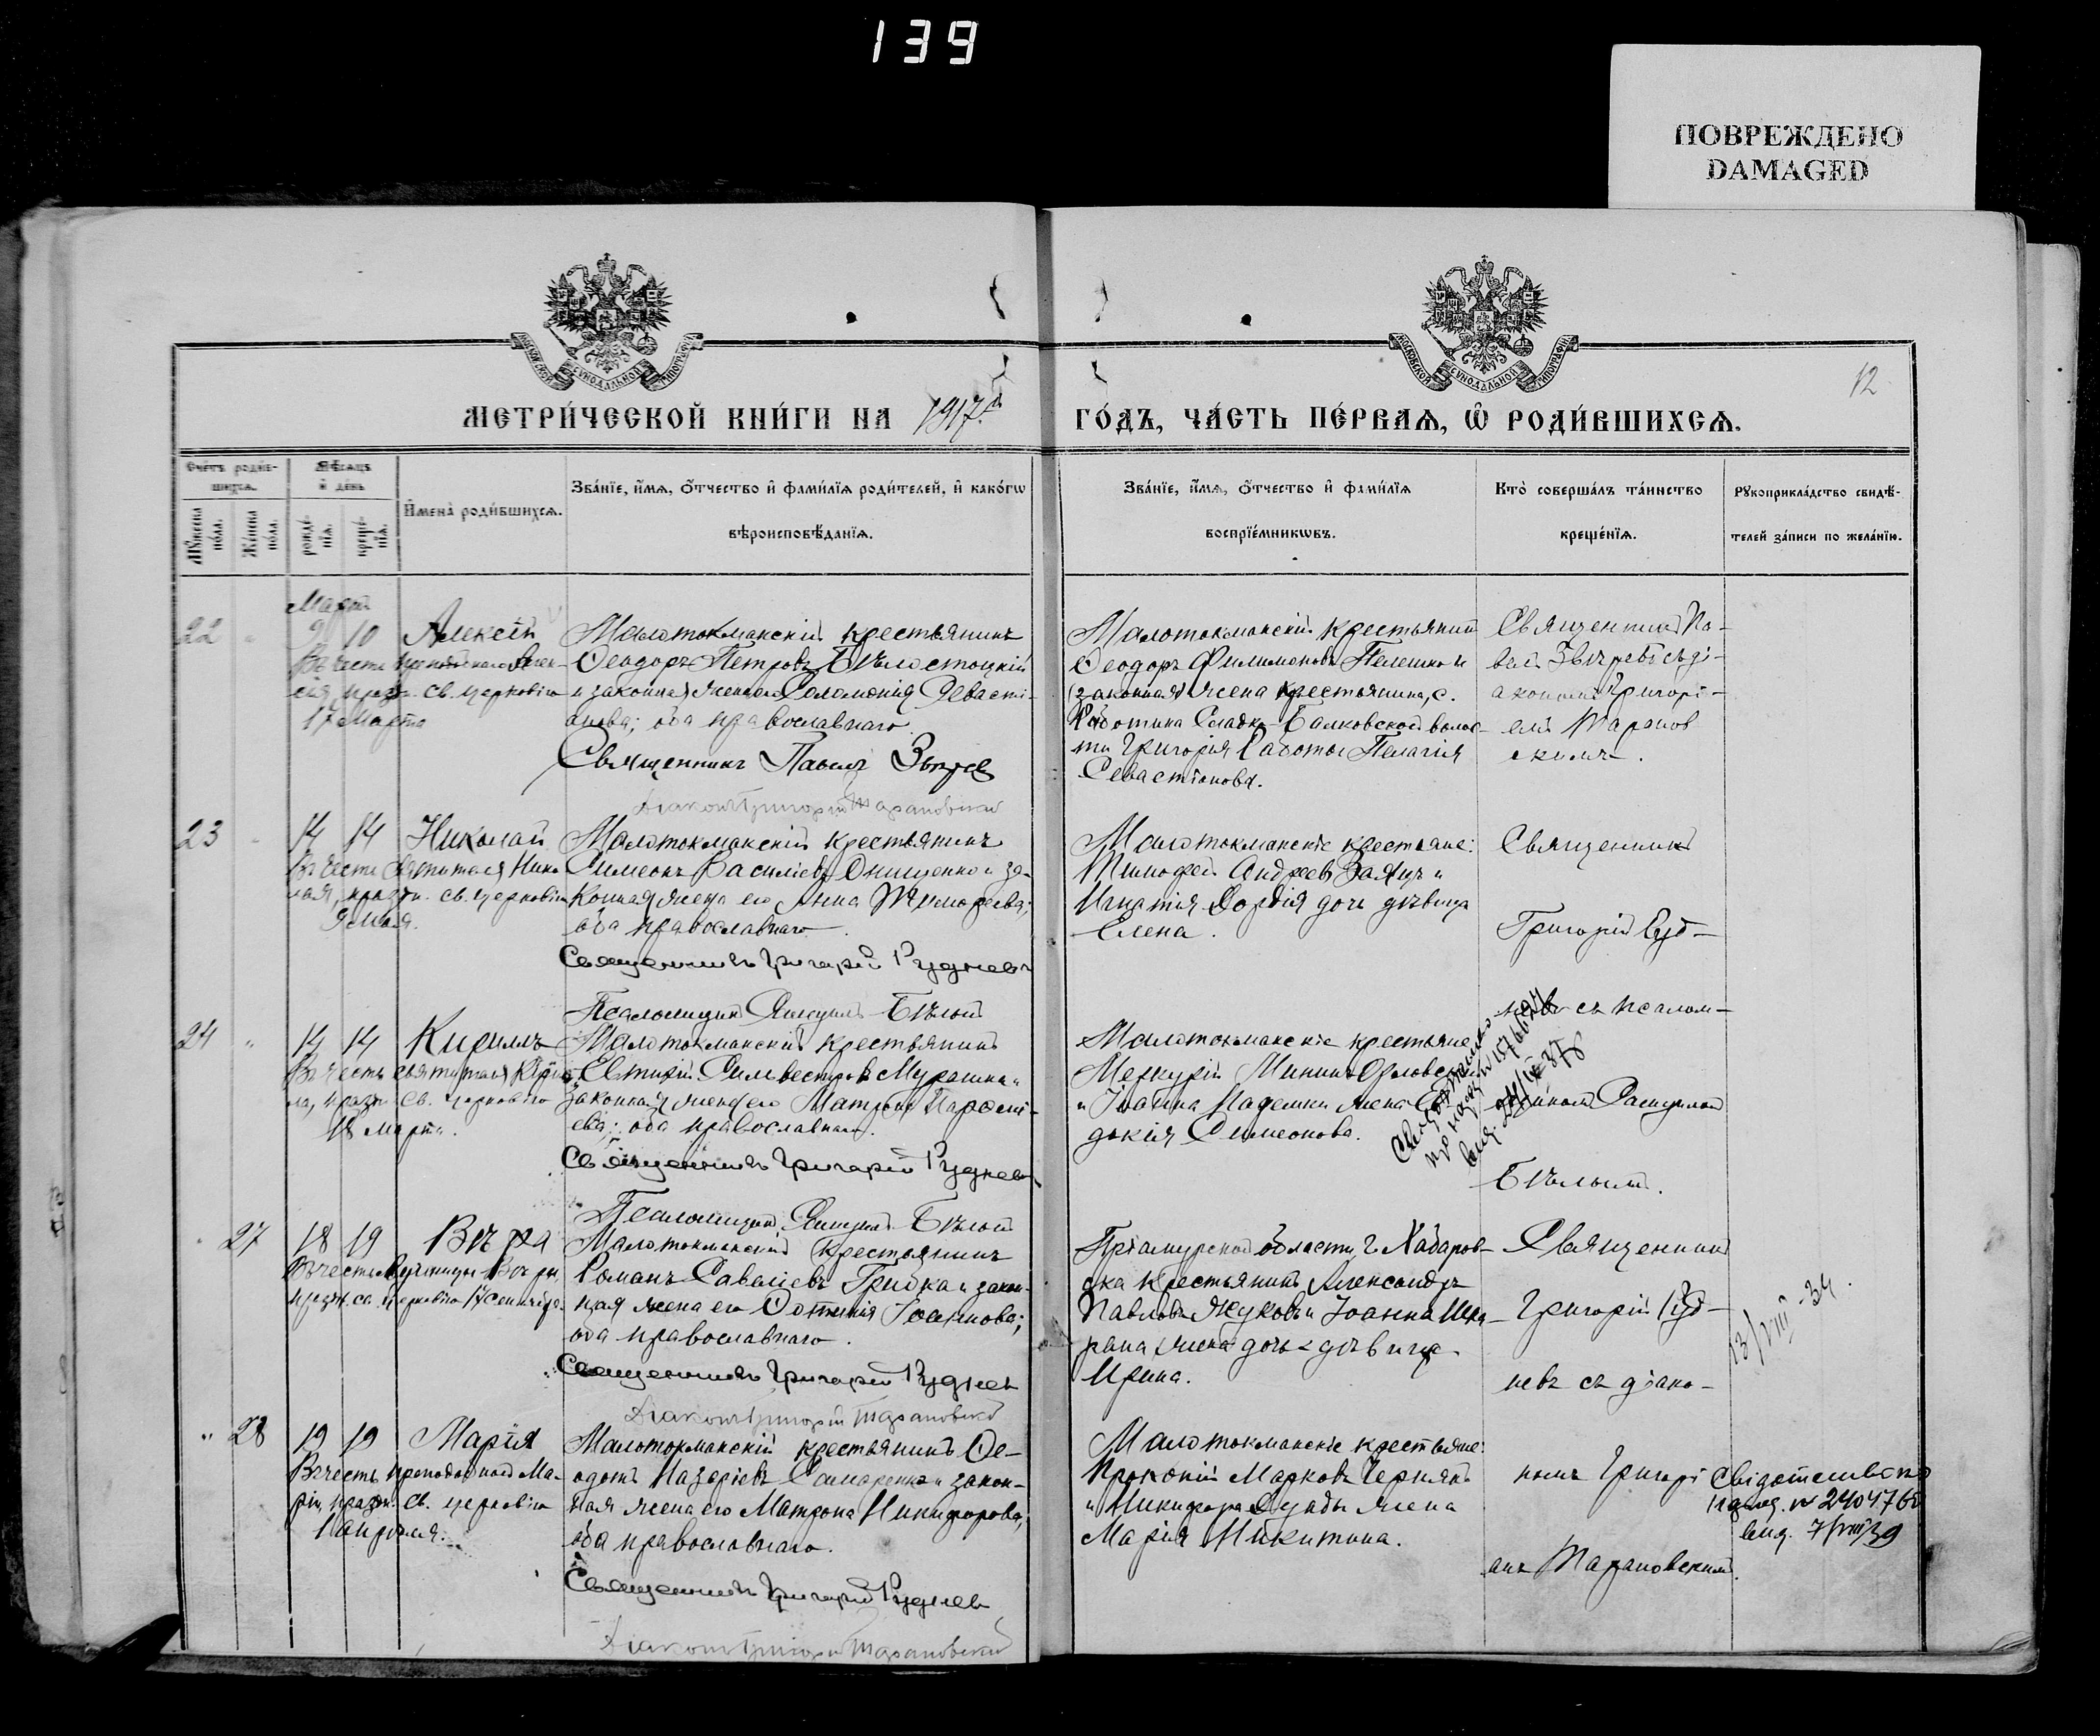 139
ПОВРЕЖДЕНО
DAMAGED
МЕТРИ́ЧЕСКОЙ КНИ́ГИ НА 1917.й
ГО́ДЪ, ЧА́СТЬ ПЕ́РВАѦ, Ѡ҆ РОДИ́ВШИХСѦ.
12
Сче́тъ роди́в-
шихсѧ.
Мѣ́сѧцъ
и҆ де́нь
Мꙋ́жеска по́ла.
Же́нска по́ла.
рожде́-
нїѧ.
креще́-
нїѧ.
И҆мена̀ роди́вшихсѧ.
Зва́нїе, и҆́мѧ, ѻ҆́тчество и҆ фами́лїѧ роди́телей, и҆ како́гѡ
вѣроисповѣ́данїѧ.
Зва́нїе, и҆́мѧ, ѻ҆́тчество и҆ фами́лїѧ
воспрїе́мникѡвъ.
Кто̀ соверша́лъ та́инство
креще́нїѧ.
Рꙋкоприкла́дство свидѣ́-
телей за́писи по жела́нїю.
Мартъ
22 " 9 10 Алексій
Въ честь преподобнаго Алек-
сія, празд. св. церковію
17 Марта
Малотокмакскій крестьянинъ
Ѳеодоръ Петровъ Бѣлостоцкій
и законная жена его Соломонія Севасті-
анова; оба православнаго
Священникъ Павелъ Звѣрев
Діаконъ Григорій Тарановскій
Малотокмакскій крестьянинъ
Ѳеодоръ Филимоновъ Пелешко и
законная жена крестьянина, с.
Работина Сладко-Балковской волос-
ти Григорія Работы Пелагія
Севастіанова.
Священникъ Па-
велъ Звѣревъ съ ді-
акономъ Григорі-
емъ Таранов
скимъ.
23 " 14 14 Николай
Въ честь Святителя Нико
лая, празд. св. церковію
9 Мая.
Малотокмакскій крестьянинъ
Симеонъ Василіевъ Онищенко и за-
конная жена его Анна Тимофеева;
оба православнаго.
Священникъ Григорій Рудневъ
Псаломщикъ Бѣлый
Малотокмакскіе крестьяне:
Тимофей Андреевъ Заяцъ и
Игнатія дочь дѣвица
Елена.
Священникъ
Григорій Руд-
невъ съ псалом-
24 " 14 14 Кириллъ
Въ честь святителя Кирил-
ла, празд. св. церковію
18 Марта.
Малотокмакскій крестьянинъ
Евтихій Сильвестровъ Мурашка и
законная жена его Матрона
ева; оба православнаго.
Священникъ Григорій Рудневъ
Псаломщикъ Бѣлый
Малотокмакскіе крестьяне:
Меркурій Мининъ Орловскій
и Іоанна жена Ев-
докія Симеонова.
щикомъ
Бѣлымъ.
" 27 18 19 Вѣра
Въ честь мученицы Вѣры,
празд. св. церковію 17 Сентября.
Малотокмакскій крестьянинъ
Романъ Саваліевъ Грибка и закон-
ная жена его Фотинія Іоаннова;
оба православнаго.
Священникъ Григорій Рудневъ
Діаконъ Григорій Тарановскій
Пріамурской области г. Хабаров-
ска крестьянинъ Александръ
Павловъ Жуковъ и Іоанна Шка-
рана жена дочь дѣвица
Ирина.
Священникъ
Григорій Руд-
невъ съ діако-
13/VIII-34.
" 28 19 19 Марія
Въ честь преподобной Ма-
ріи, празд. св. церковію
1 апрѣля.
Малотокмакскій крестьянинъ Ѳе-
одотъ Назаріевъ Самаренко и закон-
ная жена его Матрона Никифорова;
оба православнаго.
Священникъ Григорій Рудневъ
Діаконъ Григорій Тарановскій
Малотокмакскіе крестьяне:
Прокопій Марковъ Чернякъ
и Никифора Дзюбы жена
Марія Никитина.
номъ Григорі
емъ Тарановскимъ.
Свідотельство
2404760
вид. 7/VIII 39